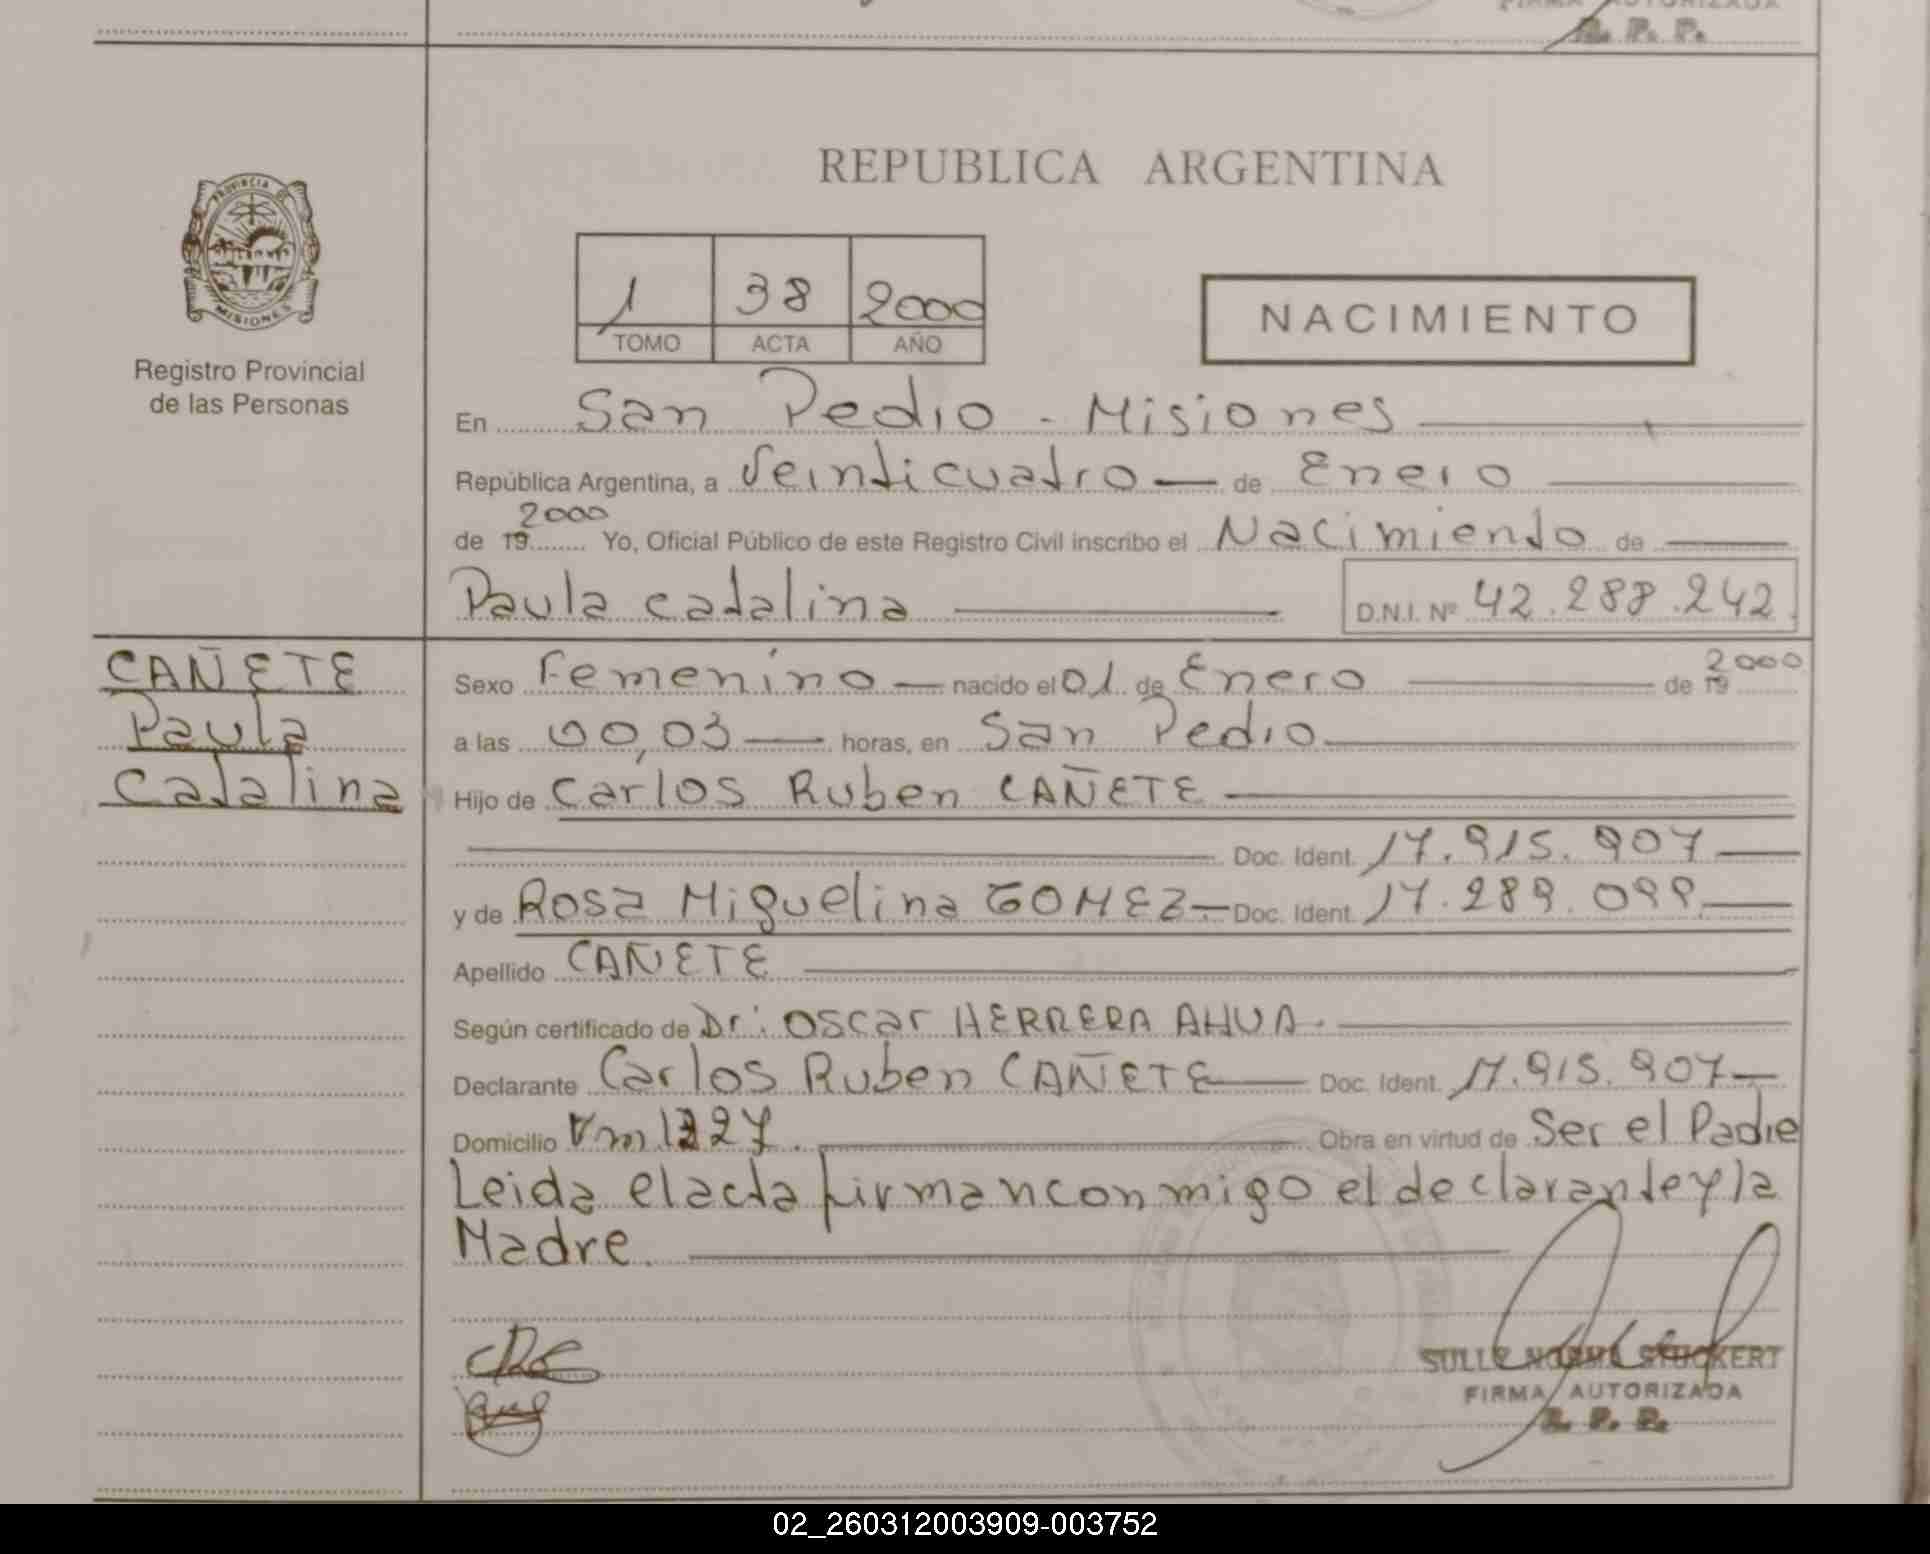 FIRMA AUTORIZADA
R. P. P.
PROVINCIA DE
MISIONES
Registro Provincial
de las Personas
REPUBLICA ARGENTINA
1 38 2000
TOMO ACTA AÑO
NACIMIENTO
En San Pedro - Misiones
República Argentina, a Veinticuatro de Enero
2000
de 19 Yo, Oficial Público de este Registro Civil inscribo el Nacimiento de
Paula Catalina D.N.I. Nº 42.288.242.
CAÑETE
Paula
Catalina
2000
Sexo Femenino nacido el 01 de Enero de 19
a las 00,03 horas, en San Pedro
Hijo de Carlos Ruben CAÑETE
Doc. Ident. 17.915.907
y de Rosa Miguelina GOMEZ Doc. Ident. 17.289.099
Apellido CAÑETE
Según certificado de Dr: Oscar HERRERA AHUA.
Declarante Carlos Ruben CAÑETE Doc. Ident. 17.915.907
Domicilio Obra en virtud de Ser el Padre
Leida el acta firman conmigo el declarante y la
Madre.
SULLY NORMA STUCKERT
FIRMA AUTORIZADA
R. P. P.
02_260312003909-003752